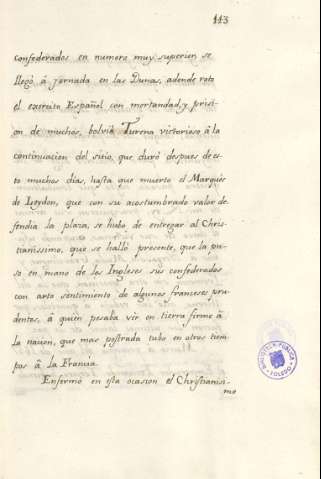 113
confederados en numero muy superior se
llegó à jornada en las Dunas, adonde roto
el exercito Español con mortandad, y prisi-
on de muchos, bolvió Turena victorioso à la
continuacion del sitio, que duró despues de es-
to muchos dias, hasta que muerto el Marquès
de Leydon, que con su acostumbrado valor de-
fendia la plaza, se hubo de entregar al Chris-
tianissimo, que se halló presente, que la pu-
so en mano de los Ingleses sus confederados
con arto sentimiento de algunos franceses pru-
dentes, à quien pesaba vir en tierra firme à
la nacion, que mas postrada tubo en otros tiem-
pos à la Francia.
Enfermó en esta ocasion el Christianisi-
mo
BIBLIOTECA PUBLICA
TOLEDO